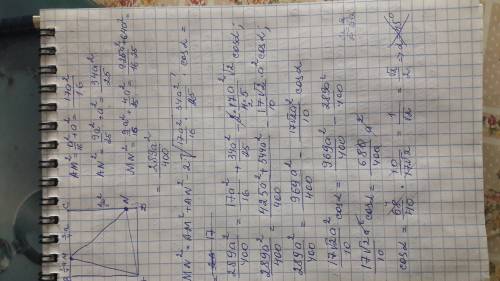 B M C
N
AM² = a²/16 + a² = 17a²/16
AN² = 9a²/25 + a² = 34a²/25
MN² = 9a²/16 + 4a²/25 = 225a²+64a²/16·25 =
= 289a²/400
MN² = AM² + AN² - 2√(17a²/16 · 34a²/25) cosα =
289a²/400 = 17a²/16 + 34a²/25 - 2·17a²√2/4·5 cosα;
289a²/400 = 425a²+544a²/400 - 17√2a²/10 cosα;
289a²/400 = 969a²/400 - 17√2a²/10 cosα
17√2a²/10 cosα = 969a²/400 - 289a²/400
17√2a²/10 cosα = 680a²/400
cosα = 68/40 · 10/17√2 = 1/√2 = √2/2 ⇒